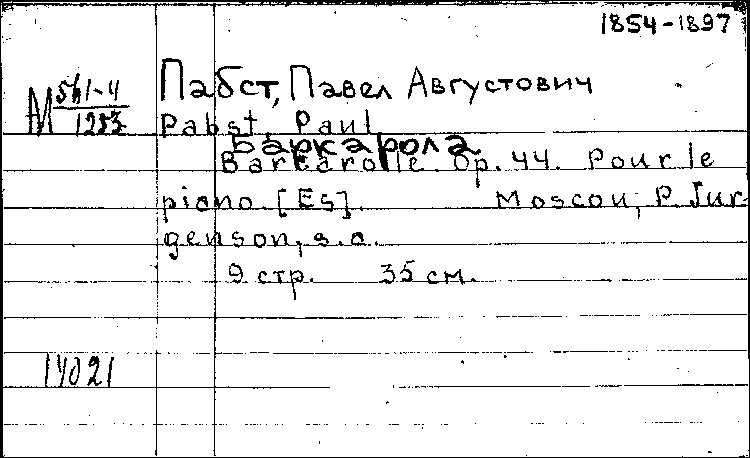 1854-1897
Пабст, Павел Августович
М 561-4
1253
Pabst, Paul
Баркарола
Barcarolle. Op. 44. Pour le
piano. [Es]. Moscou, P. Jur-
genson, s.a.
9 стр. 35 см.
14021